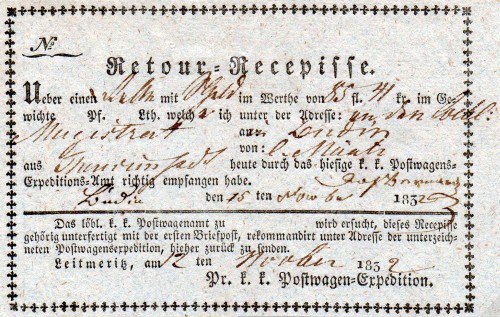 No
Retour-Recepisse.
Ueber einen mit Geld im Werthe von 85 fl. 41 kr. im Ge-
wichte Pf. Lth. welch ich unter der Adresse: an den Löbl.
Magistrat aus: Budin
aus von:
heute durch das hiesige k. k. Postwagens-
Expeditions-Amt richtig empfangen habe.
Budin den 15 ten Novbr 1832
Das löbl. k. k. Postwagenamt zu wird ersucht, dieses Recepisse
gehörig unterfertigt mit der ersten Briefpost, rekommandirt unter Adresse der unterzeich-
neten Postwagenserpedition, hieher zurück zu senden.
Leitmeritz, am 12 ten November 1832
Pr. k. k. Postwagen-Expedition.